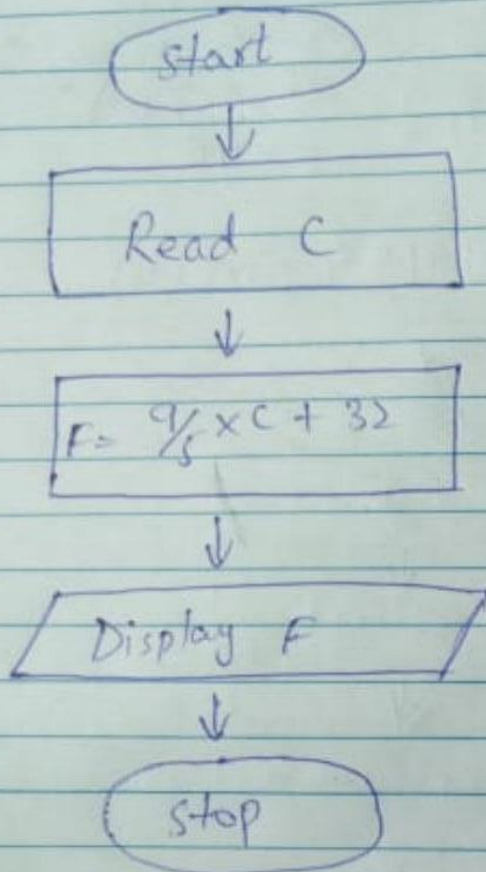 start
Read C
F= 9/5 × C + 32
Display F
stop